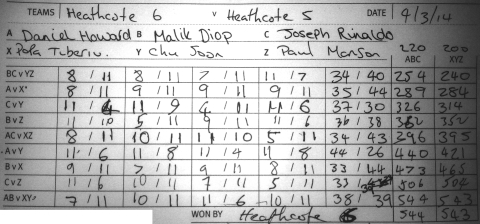 TEAMS Heathcote 6 v Heathcote 5 DATE 4/3/14
A Daniel Howard B Malik Diop C Joseph Rinaldo 220 200
X Pola Y Chu Joon Z Paul Manson ABC XYZ
BC v YZ 8 / 11 8 / 11 7 / 11 11 / 7 34 / 40 254 240
A v X 8 / 11 9 / 11 9 / 11 9 / 11 35 / 44 289 284
C v Y 11 / 4 11 / 9 4 / 11 11 / 6 37 / 30 326 314
B v Z 11 / 10 5 / 11 9 / 11 11 / 6 36 / 38 362 352
AC v XZ 8 / 11 10 / 11 11 / 10 5 / 11 34 / 43 396 395
A v Y 11 / 6 11 / 8 11 / 4 11 / 8 44 / 26 440 421
B v X 9 / 11 7 / 11 9 / 11 8 / 11 33 / 44 473 465
C v Z 11 / 6 10 / 11 7 / 11 5 / 11 33 / 506 504
AB v XY 7 / 11 10 / 11 11 / 6 10 / 11 38 / 39 544 543
WON BY Heathcote 6 544 543